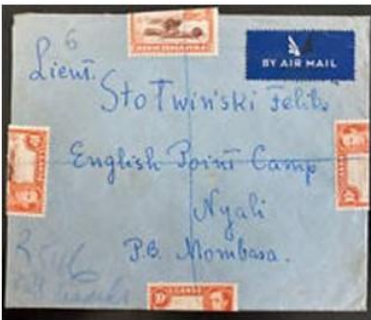 6
BY AIR MAIL
Lieut.
Sto Twiński Feliks
English Point Camp
Nyali
P.B. Mombasa.